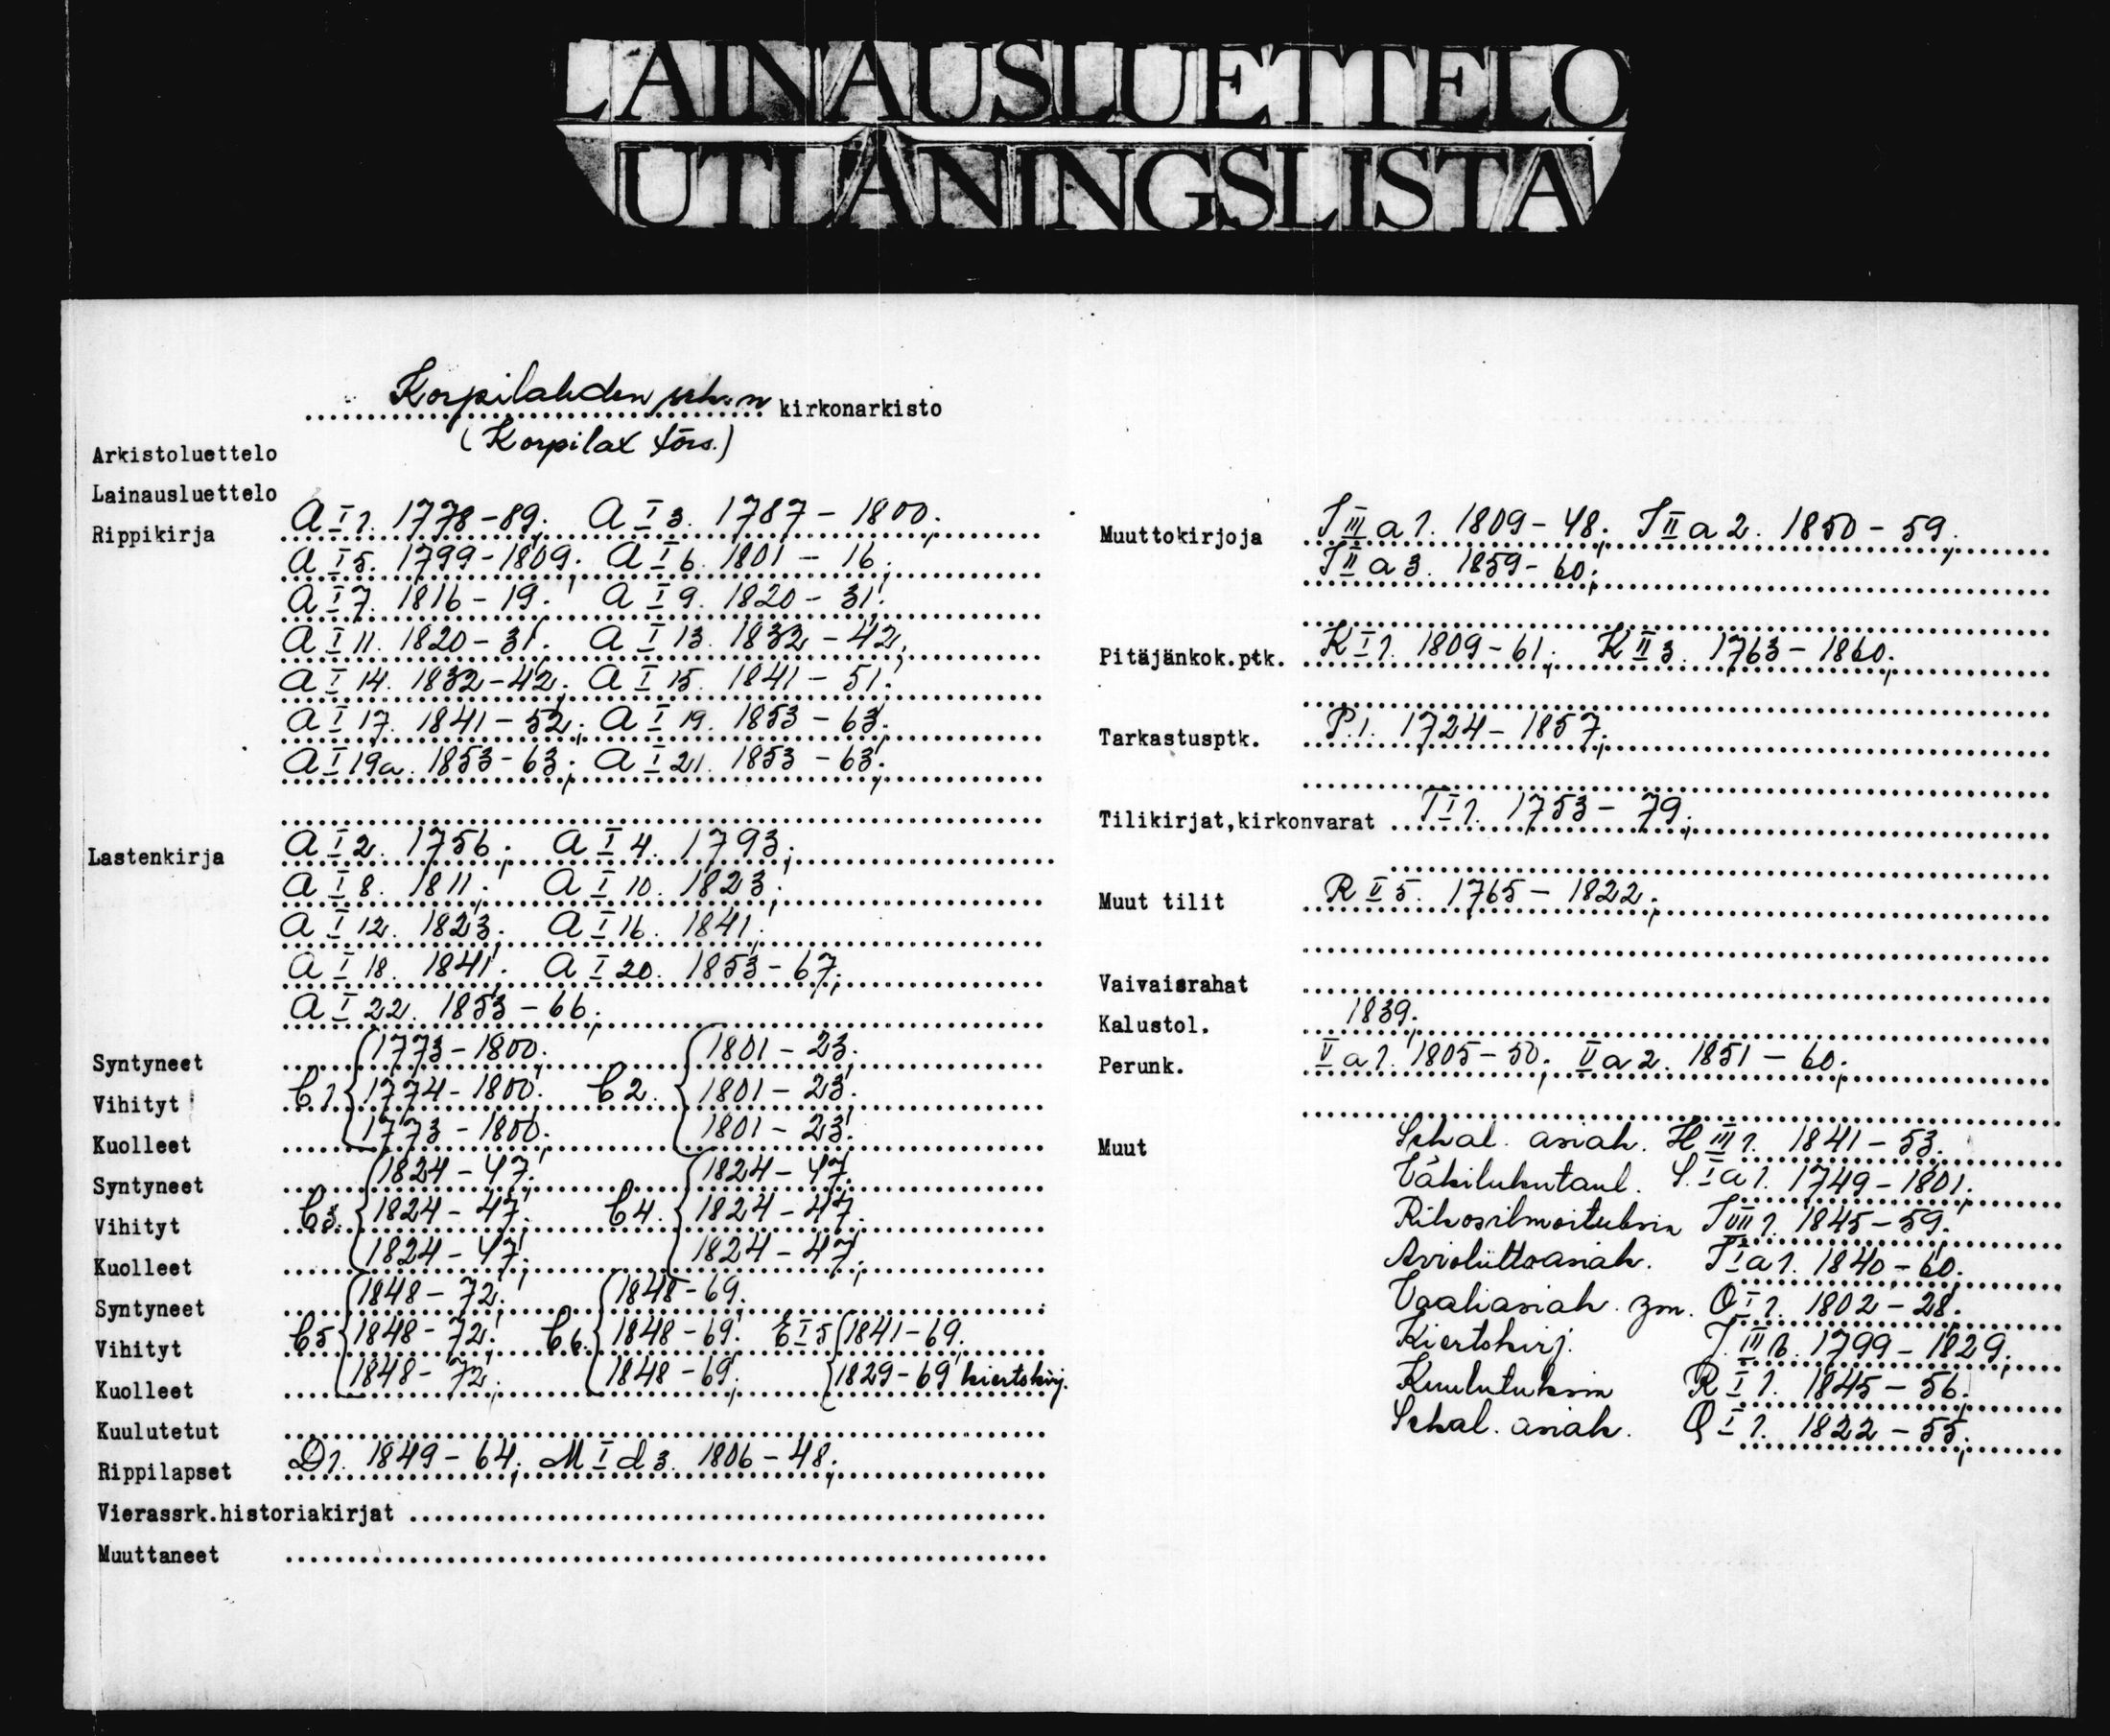 LAINAUSLUETTELO
UTLÅNINGSLISTA
Korpilahden srk:n kirkonarkisto
(Korpilax förs.)
Arkistoluettelo
Lainausluettelo
Rippikirja A I 1. 1778-89; A I 3. 1787-1800;
A I 5. 1799-1809; A I 6. 1801-16;
A I 7. 1816-19; A I 9. 1820-31;
A I 11. 1820-31; A I 13. 1832-42;
A I 14. 1832-42; A I 15. 1841-51;
A I 17. 1841-52; A I 19. 1853-63;
A I 19a. 1853-63; A I 21. 1853-63;
Lastenkirja A I 2. 1756; A I 4. 1793;
A I 8. 1811; A I 10. 1823;
A I 12. 1823; A I 16. 1841;
A I 18. 1841; A I 20. 1853-67;
A I 22. 1853-66;
Syntyneet 1773-1800; 1801-23;
Vihityt C 1 1774-1800; C 2. 1801-23;
Kuolleet 1773-1800; 1801-23;
Syntyneet 1824-47; 1824-47;
Vihityt C 3. 1824-47; C 4. 1824-47;
Kuolleet 1824-47; 1824-47;
Syntyneet 1848-72; 1848-69.
Vihityt C 5 1848-72; C 6. 1848-69; E I 5 1841-69;
Kuolleet 1848-72; 1848-69; 1829-69 kiertokirj.
Kuulutetut
Rippilapset D 1. 1849-64; M I d 3. 1806-48;
Vierassrk.historiakirjat
Muuttaneet
Muuttokirjoja I III a 1. 1809-48; I II a 2. 1850-59;
I II a 3. 1859-60;
Pitäjänkok.ptk. K I 1. 1809-61; K II 3. 1763-1860;
Tarkastusptk. P.1. 1724-1857;
Tilikirjat,kirkonvarat T I 1. 1753-79;
Muut tilit R II 5. 1765-1822;
Vaivaisrahat
Kalustol. 1839;
Perunk. V a 1. 1805-50; V a 2. 1851-60;
Muut Sekal. asiak. H III 1. 1841-53.
Väkilukutaul. S. I a 1. 1749-1801;
Rikosilmoituksia I VII 1. 1845-59.
Avioliittoasiak. I I a 1. 1840-60;
Vaaliasiak. ym. O I 1. 1802-28.
Kiertokirj. 1799-1829;
Kuulutuksia R I 1. 1845-56;
Sekal. asiak. Q I 1. 1822-55;